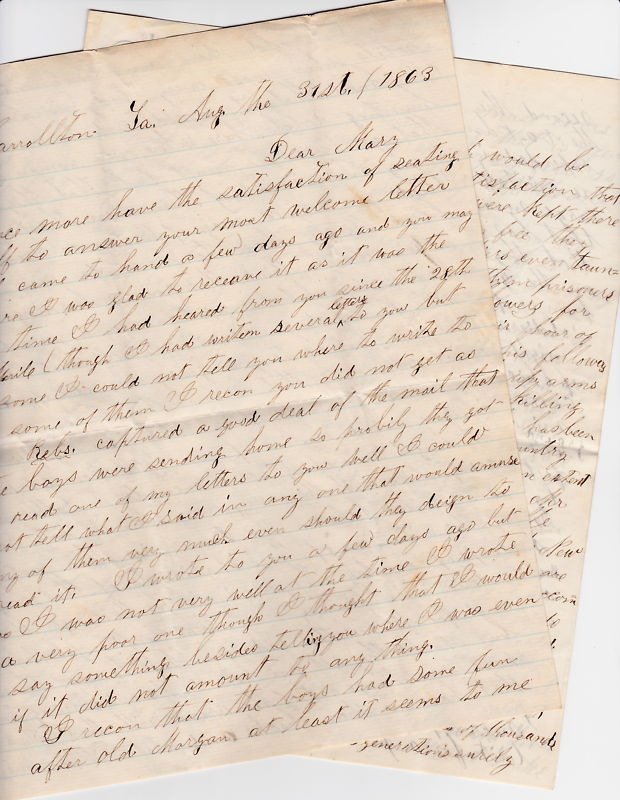 arrollton. La. Aug. the 31st. / 1863
Dear Mary
ce more have the satisfaction of seating
f to answer your most welcome letter
came to hand a few days ago and you may
re I was glad to receave it as it was the
time I had heared from you since the 28th
(though I had writem several letters to you but
some I could not tell you where to write to
some of them I recon you did not get as
Rebs. captured a good deal of the mail that
e boys were sending home so probily they got
read one of my letters to you well I could
ot tell what I said in any one that would amuse
ny of them very much even should they deign to
read it. I wrote to you a few days ago but
I was not very well at the time I wrote
a very poor one though I thought that I would
say something besides telling you where I was even
if it did not amount to any thing.
I recon that the boys had some fun
after old Morgan at least it seems to me
would be
tisfaction that
were kept there
bee they
rs even taun-
them prisoners
owers for
hour of
his followers
arms
killing
has been
untry
extent
Mr
be
New
are
com
to
of thousands
generations